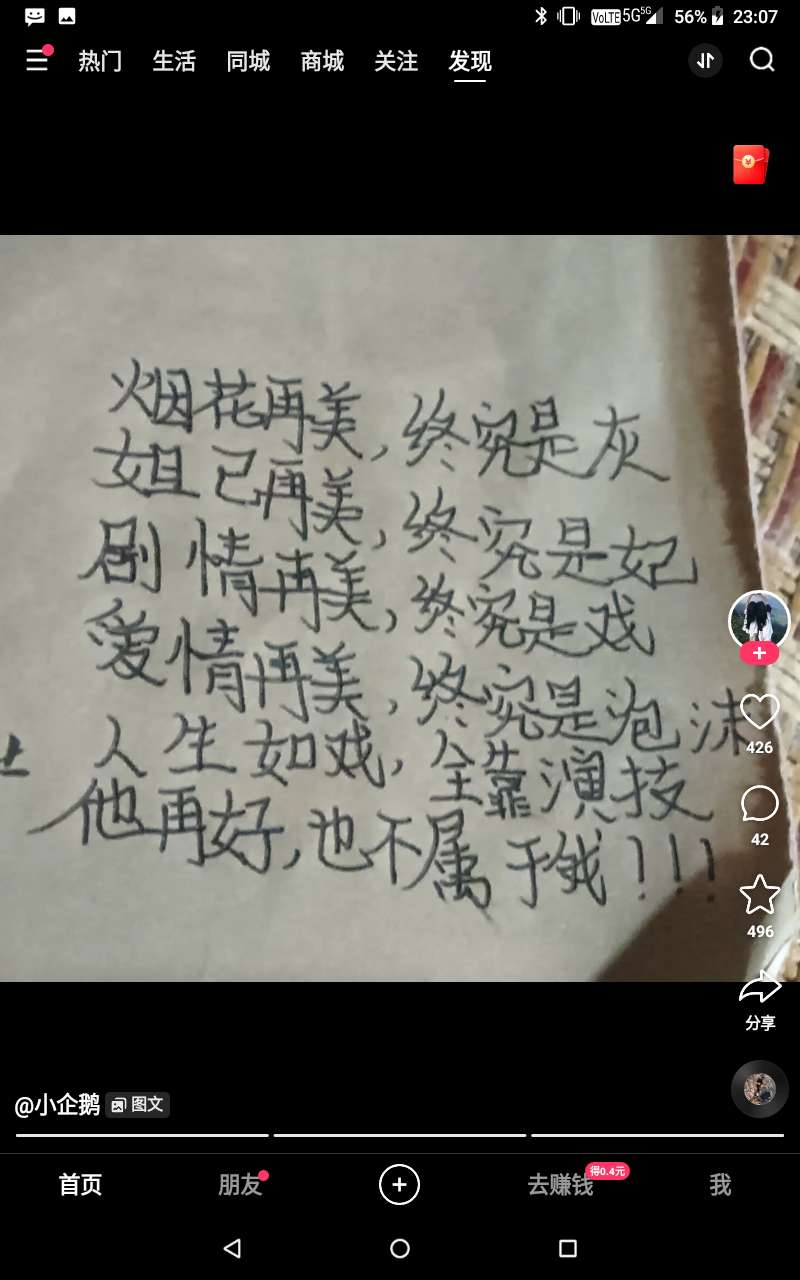 VoLTE 5G 5G 56% 23:07
热门 生活 同城 商城 关注 发现
烟花再美,终究是灰
妲己再美,终究是妃
剧情再美,终究是戏
爱情再美,终究是泡沫
人生如戏,全靠演技
他再好,也不属于我!!!
426
42
496
分享
@小企鹅 图文
首页 朋友 去赚钱 得0.4元 我